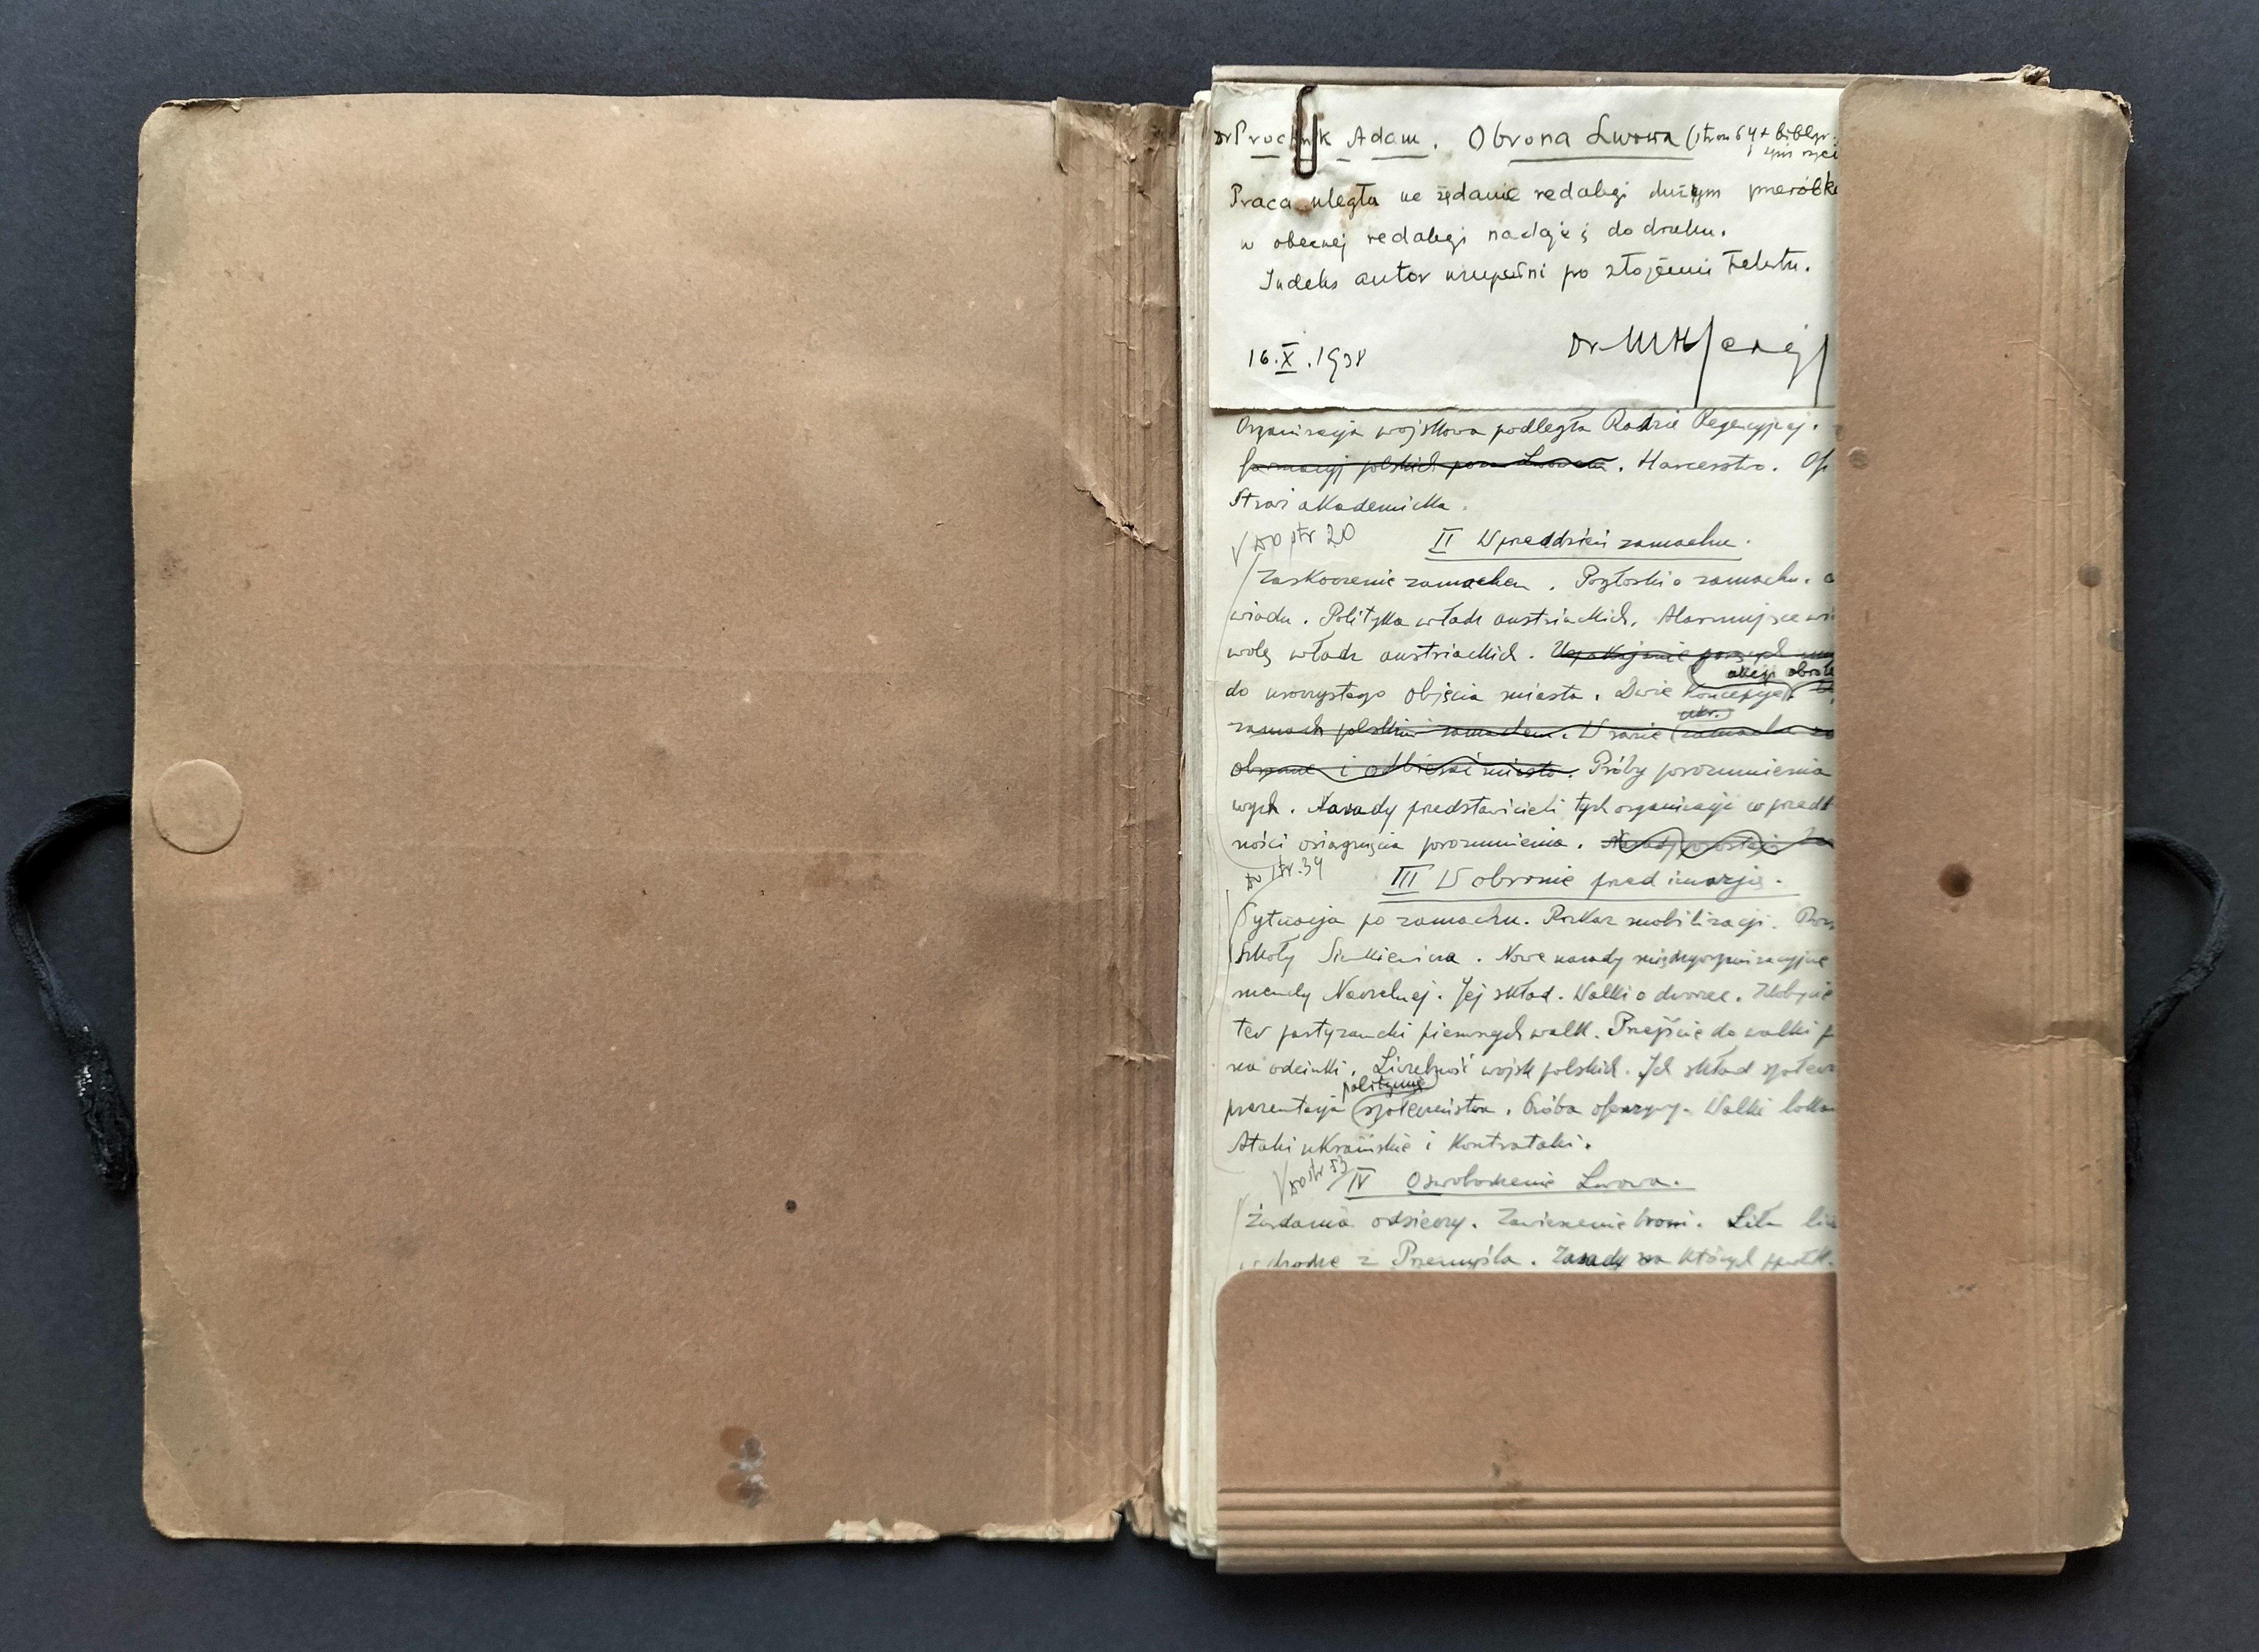 Dr Próchnik Adam. Obrona Lwowa (stron 64 + bibliogr.
Praca uległa na żądanie redakcji dużym przeróbko
w obecnej redakcji nadaje się do druku.
Indeks autor uzupełni po złożeniu tekstu.
16.X.1938 Dr
Organizacja wojskowa podległa Radzie Regencyjnej.
formacyj polskich poza Lwowem. Harcerstwo.
Straż akademicka.
Do str 20 II W przeddzień zamachu.
Zaskoczenie zamachem. Pogłoski o zamachu.
wiadu. Polityka władz austriackich. Alarmujące wi
wolę władz austriackich.
akcji obro
do uroczystego objęcia miasta. Dwie koncepcje
ukr.
zamach polskim zamachem. W razie zamachu
i odbierać miasto. Próby porozumienia
wych. Narady przedstawicieli tych organizacji w przed
ności osiągnięcia porozumienia.
Do str. 34 III W obronie przed inwazją.
Sytuacja po zamachu. Rozkaz mobilizacji.
Szkoły Sienkiewicza. Nowe narady międzyorganizacyjne
mendy Naczelnej. Jej skład. Walki o dworzec. Zdobycie
ter partyzancki pierwszych walk. Przejście do walki p
na odcinki. Liczebność wojsk polskich. Ich skład społecz
polityczne
prezentacja społeczeństwa. Próba ofenzywy. Walki loka
Ataki ukraińskie i kontrataki.
Do str 53 IV Oswobodzenie Lwowa.
Żądania odsieczy. Zawieszenie broni. Siła li
drodze z Przemyśla. Zasady na których